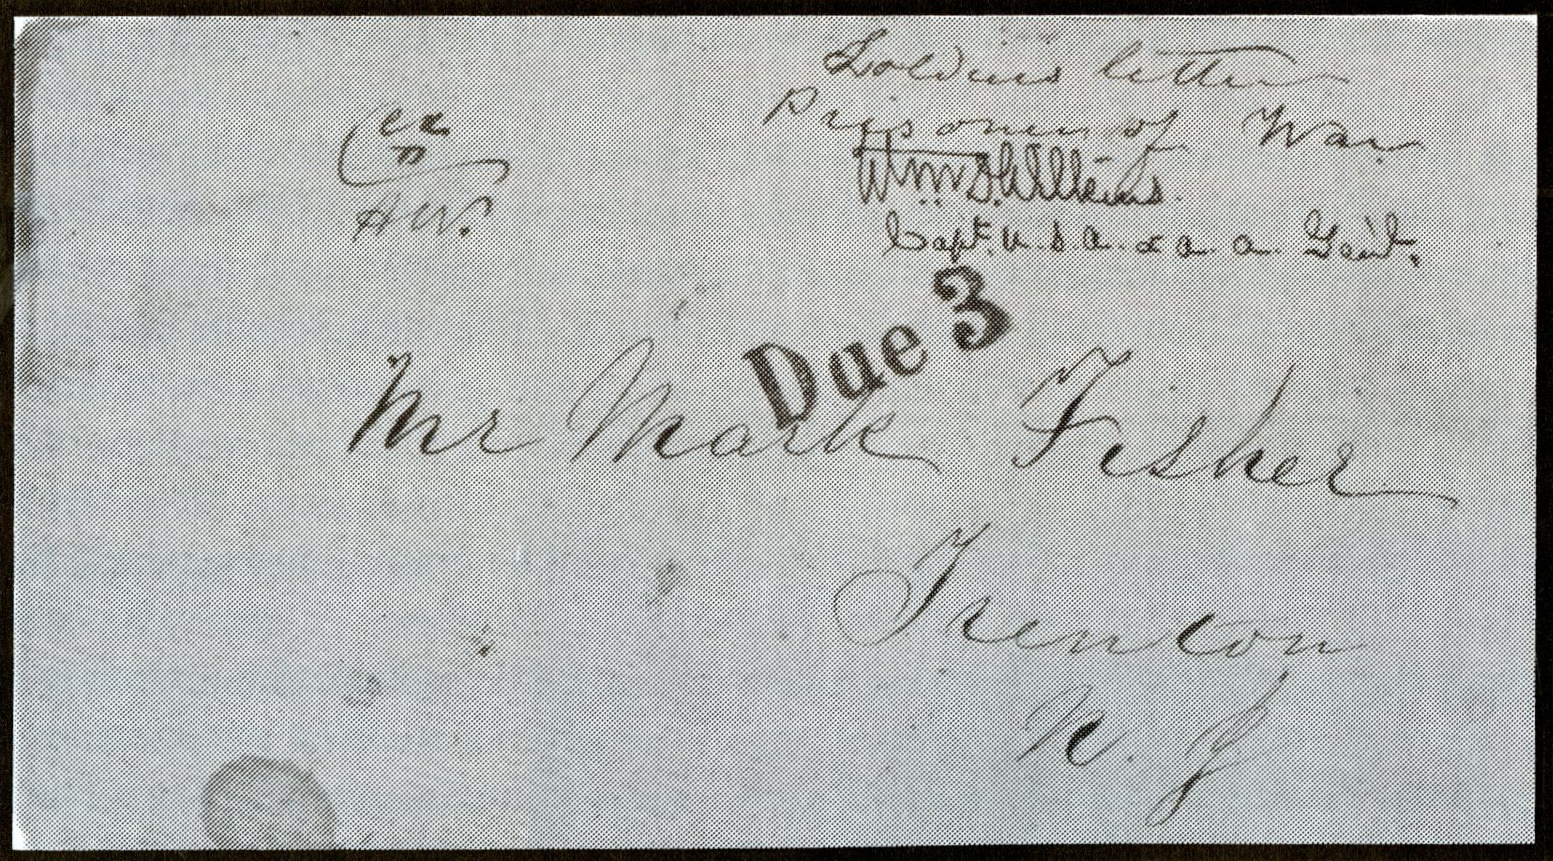 Soldiers letter
Prisoner of War
Wm. D. Wilkins.
Capt. U.S.A. & a. a. Genl.
Ex
A W.
Due 3
Mr Mark Fisher
Trenton
N. J